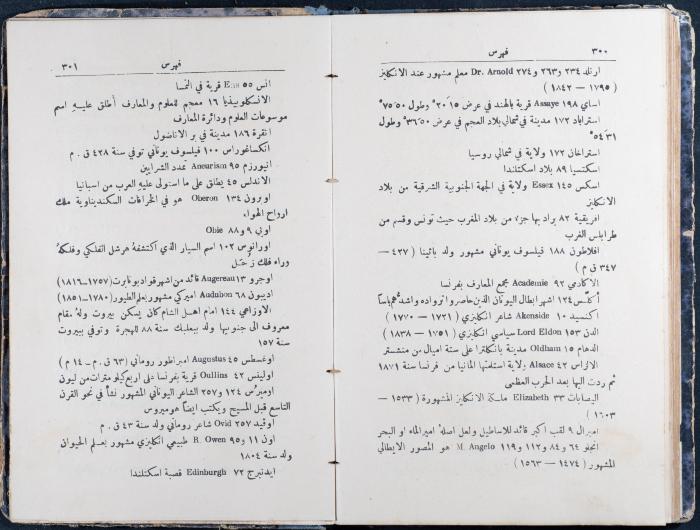 ٣٠٠ فهرس
ارنلد ٢٣٤ و٢٦٣ و٢٧٤ Dr. Arnold معلم مشهور عند الانكليز
( ١٧٩٥ — ١٨٤٢ )
اساي ١٩٨ Assaye قرية بالهند في عرض ١٥ ٢٠° وطول ٥٠ ٧٥°
استراباد ١٧٢ مدينة في شمالي بلاد العجم في عرض ٥٠ ٣٦° وطول
٣١ ٥٤°
استراخان ١٧٢ ولاية في شمالي روسيا
اسكتسيا ٨٩ بلاد اسكتلندا
اسكس ١٤٥ Essex ولاية في الجهة الجنوبية الشرقية من بلاد
الانكليز
افريقية ٨٢ يراد بها جزء من بلاد المغرب حيث تونس وقسم من
طرابلس الغرب
افلاطون ١٨٨ فيلسوف يوناني مشهور ولد باثينا ( ٤٢٧ —
٣٤٧ ق م )
الاكادمي ٩٢ Academie مجمع المعارف بفرنسا
أكلّس ١٢٤ اشهر ابطال اليونان الذين حاصروا تروادة واشدهم باسًا
اكنسيد ١٠ Akenside شاعر انكليزي ( ١٧٢١ — ١٧٧٠ )
الدن ١٥٣ Lord Eldon سياسي انكليزي ( ١٧٥١ — ١٨٣٨ )
الدهام ١٥ Oldham مدينة بانكلترا على ستة اميال من منشستر
الالزاس ٤٢ Alsace ولاية استلمتها المانيا من فرنسا سنة ١٨٧١
ثم ردت اليها بعد الحرب العظمى
اليصابات ٣٣ Elizabeth ملكة الانكليز المشهورة ( ١٥٣٣ —
١٦٠٣ )
اميرال ٩ لقب اكبر قائد للاساطيل ولعل اصله امير الماء او البحر
انجلو ٦٤ و٨٤ و١١٢ و١١٩ M. Angelo هو المصور الايطالي
المشهور ( ١٤٧٤ — ١٥٦٣ )
فهرس ٣٠١
انس ٥٥ Enns قرية في النمسا
الانسكلوبيذيا ١٦ معجم للعلوم والمعارف أطلق عليه اسم
موسوعات العلوم ودائرة المعارف
انقرة ١٨٦ مدينة في بر الاناضول
انكساغوراس ١٠٠ فيلسوف يوناني توفي سنة ٤٢٨ ق . م
انيورزم ٩٥ Aneurism تمدد الشرايين
الاندلس ٤٥ يطلق على ما استولى عليه العرب من اسبانيا
اوبرون ١٣٤ Oberon هو في الخرافات السكندنياوية ملك
ارواح الهواء
اوبي ٩ و٨٨ Obie
اورانوس ١٠٢ اسم السيار الذي اكتشفه هرشل الفلكي وفلكه
وراء فلك زُحَل
اوجرو ١٣ Augereau قائد من اشهر قواد بونابرت (١٧٥٧—١٨١٦)
اديبون ٦٨ Audubon اميركي مشهور بعلم الطيور (١٧٨٠—١٨٥١)
الاوزاعي ١٤٤ امام اهل الشام كان يسكن بيروت وله مقام
معروف الى جنوبيها ولد ببعلبك سنة ٨٨ للهجرة وتوفي ببيروت
سنة ١٥٧
اوغسطس ٤٥ Augustus امبراطور روماني (٦٣ ق . م — ١٤ م )
اولينس ٤٢ Oullins قرية بفرنسا على اربع كيلو مترات من ليون
اوميرُس ١٢٤ و٢٥٧ الشاعر اليوناني المشهور نشأ في نحو القرن
التاسع قبل المسيح ويكتب ايضًا هوميروس
اوڤيد ٢٥٧ Ovid شاعر روماني ولد سنة ٤٣ ق . م
اون ١١ و٩٥ R. Owen طبيعي انكليزي مشهور بعلم الحيوان
ولد سنة ١٨٠٤
ايدنبرج ٧٢ Edinburgh قصبة اسكتلندا